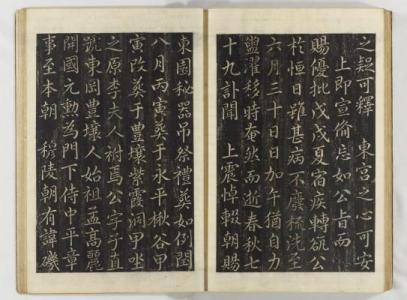 之疑可釋 東宮之心可安
上即宣諭忘如公旨而
賜優批戊戌夏宿疾轉㞃公
於恒日雖甚病不廢梳洗至
六月三十日日加午猶自力
盥濯移時奄然而逝春秋七
十九訃聞 上震悼輟朝賜
東園秘器吊祭禮葬如例閏
八月丙寅葬于永平楸谷甲
寅改葬于豊壤紫霞洞甲坐
之原李夫人祔焉公字子直
號東岡豊壤人始祖孟高麗
開國元勲為門下侍中平章
事至本朝 穆陵朝有諱磯